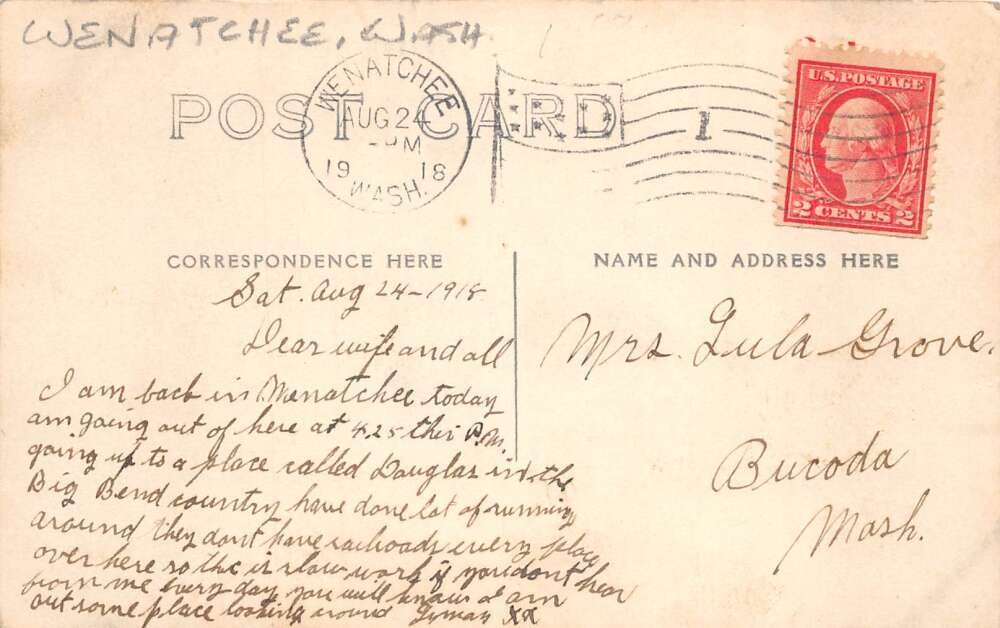 WENATCHEE, WASH
POST CARD
WENATCHEE
AUG 24
PM
19 18
WASH.
1
U.S. POSTAGE
2 CENTS 2
CORRESPONDENCE HERE
NAME AND ADDRESS HERE
Sat. Aug 24-1918
Dear wife and all
I am back in Wenatchee today
am going out of here at 4.25 this P.M.
going up to a place called Douglas in the
Big Bend country have done lot of running
around they dont have railroads every place
over here so the is slow work if you dont hear
from me every day you will know I am
out some place looking around Lyman XX
Mrs. Lula Grove.
Bucoda
Wash.